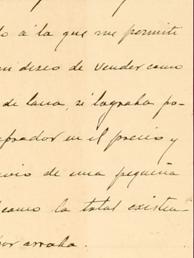 o á la que me permití
mi deseo de vender como
de lana, si lograba po-
prador en el precio y
de una pequeña
la total existen-
por arroba.